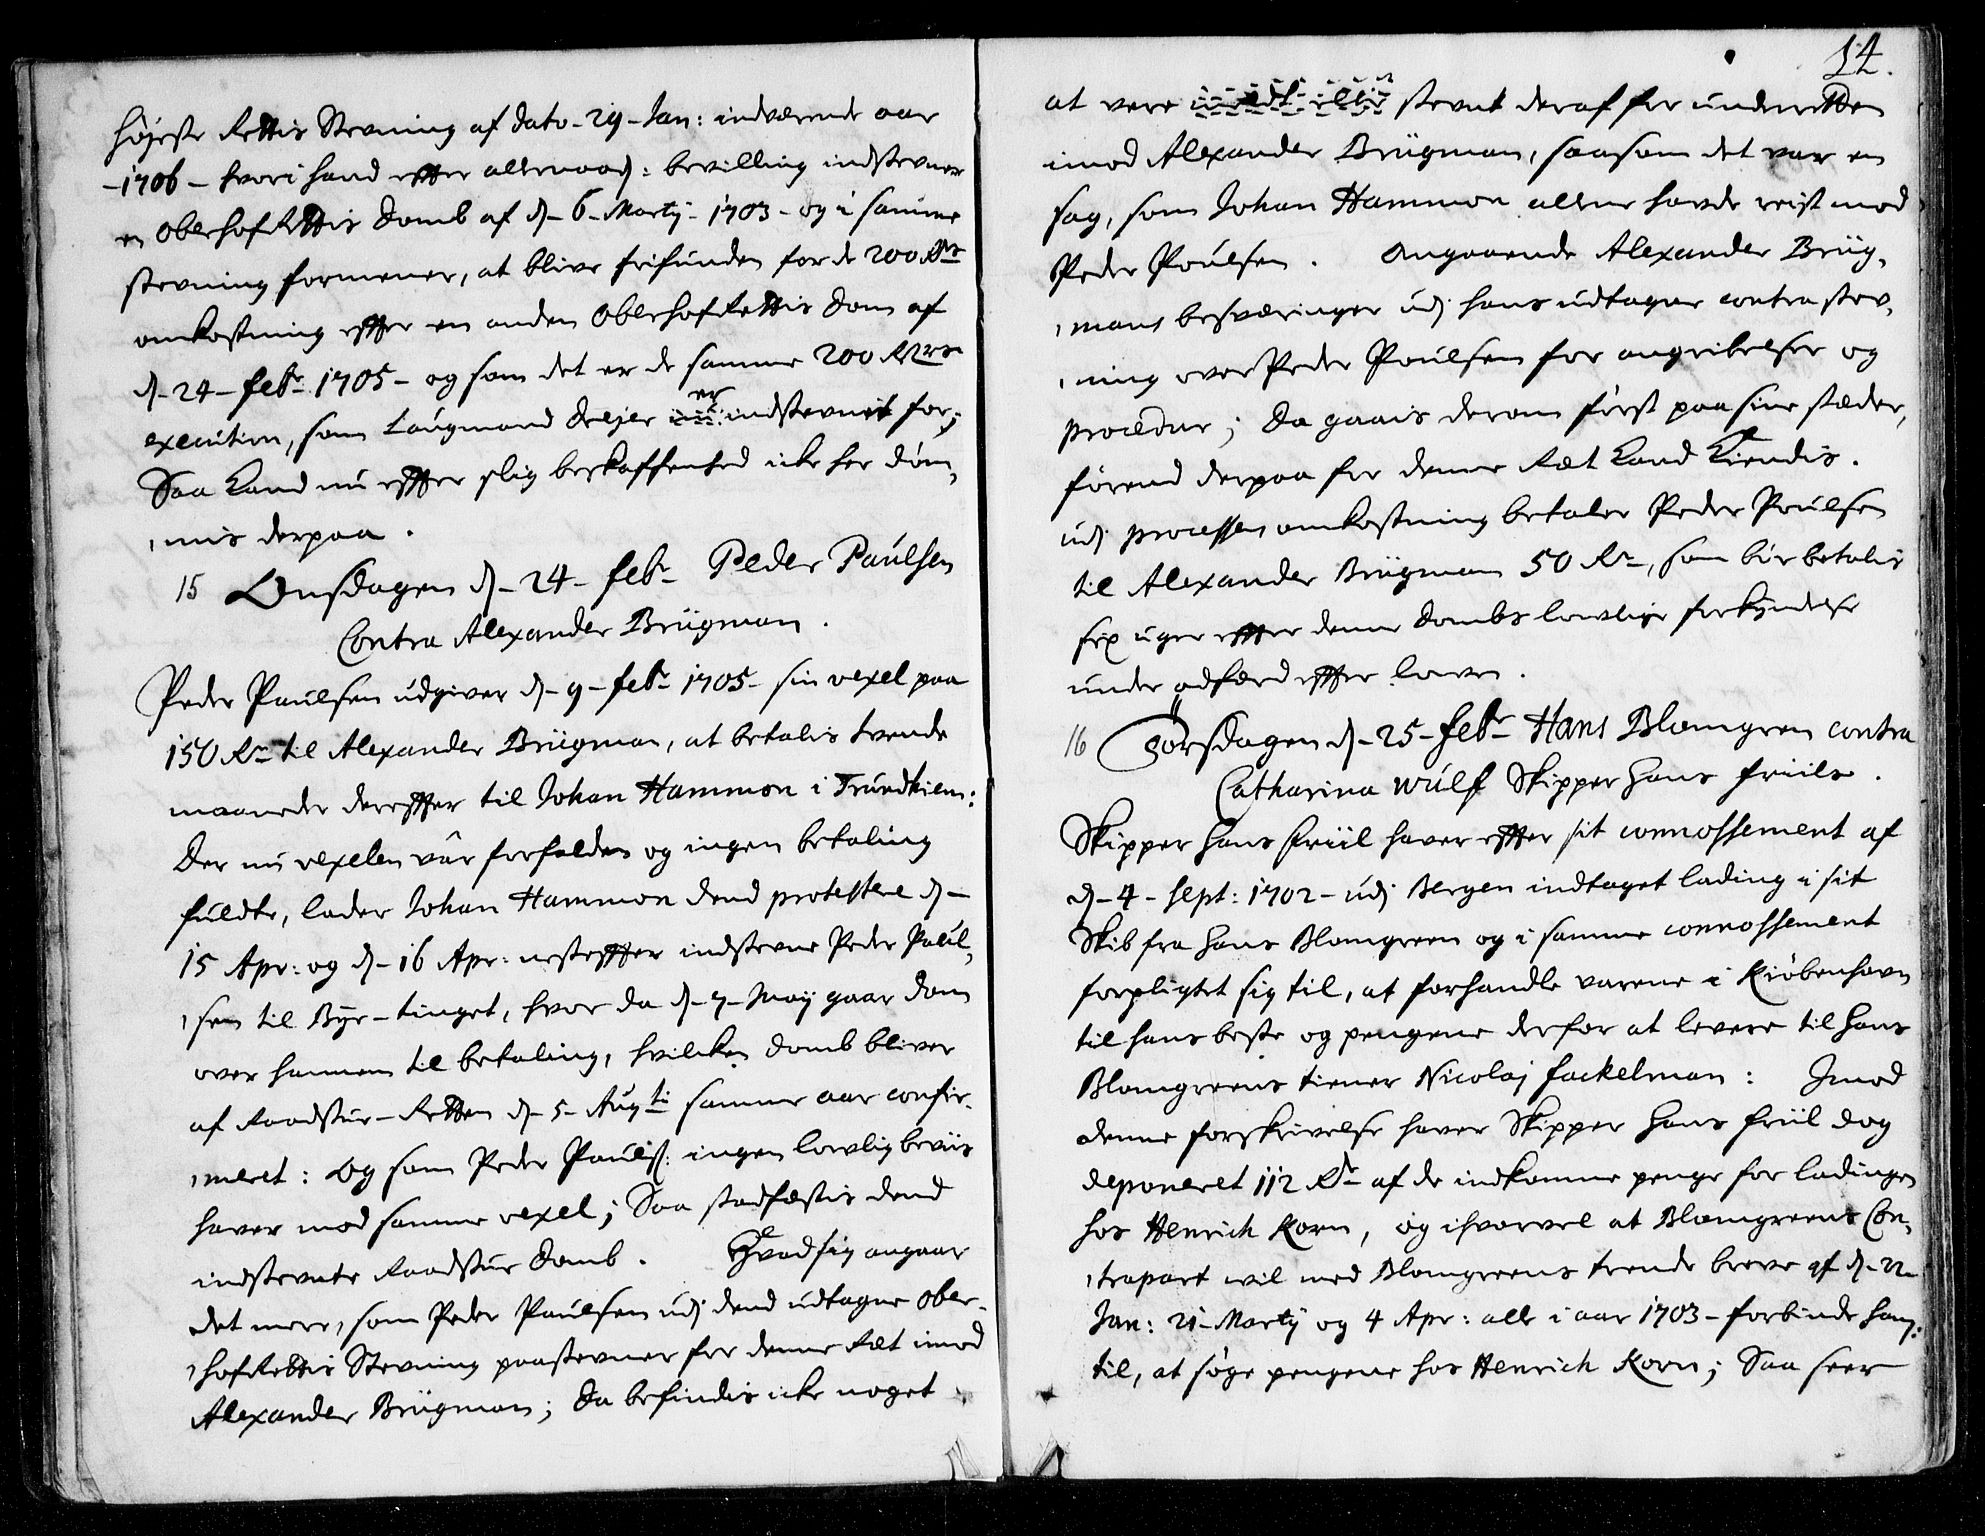 høyeste Rettis Stevning af dato - 29 - Jan: indværende aar
- 1706 - hvori hand effter allernaad: bevilling indstevner
en OberhofRettis Domb af d - 6 - Martij - 1703 - og i samme
stevning formener, at blive frifunden for de 200 Rdr
omkostning effter en anden OberhofRettis Dom af
d - 24 - febr 1705 - og som det er de samme 200 Rdrs
execution, som Laugmand Drejer er indstevnet for;
Saa kand nu effter slig beskaffenhed icke her døm,
,mis derpaa.
15 Onsdagen d - 24 - febr Peder Paulsen
Contra Alexander Brügman.
Peder Paulsen udgiver d - 9 - febr 1705 - sin vexel paa
150 Rdr til Alexander Brügman, at betalis trende
maaneder dereffter til Johan Hammon i Trundhiem:
Der nu vexelen var forfalden og ingen betaling
fuldte, lader Johan Hammon dend protestere d -
15 Apr: og d - 16 Apr: nesteffter indstevne Peder Paul,
,sen til Bye - tinget, hvor da d - 7 - Maij gaar dom
over hannem til betaling, hvilcken domb bliver
af Raadstue - Retten d - 5 - Augti samme aar confir,
,meret: Og som Peder Paulsß: ingen lowlig beviis
haver mod samme vexel; Saa stadfæstis dend
indstevnte Raadstue Domb. Hvad sig angaar
det mere, som Peder Paulsen udj dend udtagne Ober,
,hofRettis Stevning paastevner for denne Ræt imod
Alexander Brügman; Da befindis icke noget
14.
at vere stevnt deraf for underretten
imod Alexander Brügman, saasom det var en
sag, som Johan Hammon allene havde reist mod
Peder Poulsen. Angaaende Alexander Brüg,
,mans besværinger udj hans udtagne contra stev,
,ning over Peder Poulsen for angribelse og
procedur; Da gaais derom først paa sine stæder,
førend derpaa for denne Ræt kand kiendis.
udj processens omkostning betaler Peder Poulsen
til Alexander Brügman 50 Rdr, som bør betalis
sex uger effter denne Dombs lowlige forkyndelse
under adfærd effter lowen.
16 Torsdagen d - 25 - febr Hans Blomgren contra
Catharina Wulf Skipper Hans Friils.
Skipper Hans Friil haver effter sit connossement af
d - 4 - Sept: 1702 - udj Bergen indtaget lading i sit
Skib fra Hans Blomgreen og i samme connossement
forpligtet sig til, at forhandle varene i Kiøbenhavn
til hans beste og pengene derfor at levere til Hans
Blomgreens tiener Nicolaj Fackelman: Imod
denne forskrivelse haver Skipper Hans Friil dog
deponeret 112 Rdr af de indkomne penge for ladingen
hos Henrich Korn, og ihvorvel at Blomgreens Con,
,trapart wil med Blomgreens trende breve af d - 22
Jan: 21 - Martij og 4 Apr: alle i aar 1703 - forbinde ham:
til, at søge pengene hos Henrich Korn; Saa seer